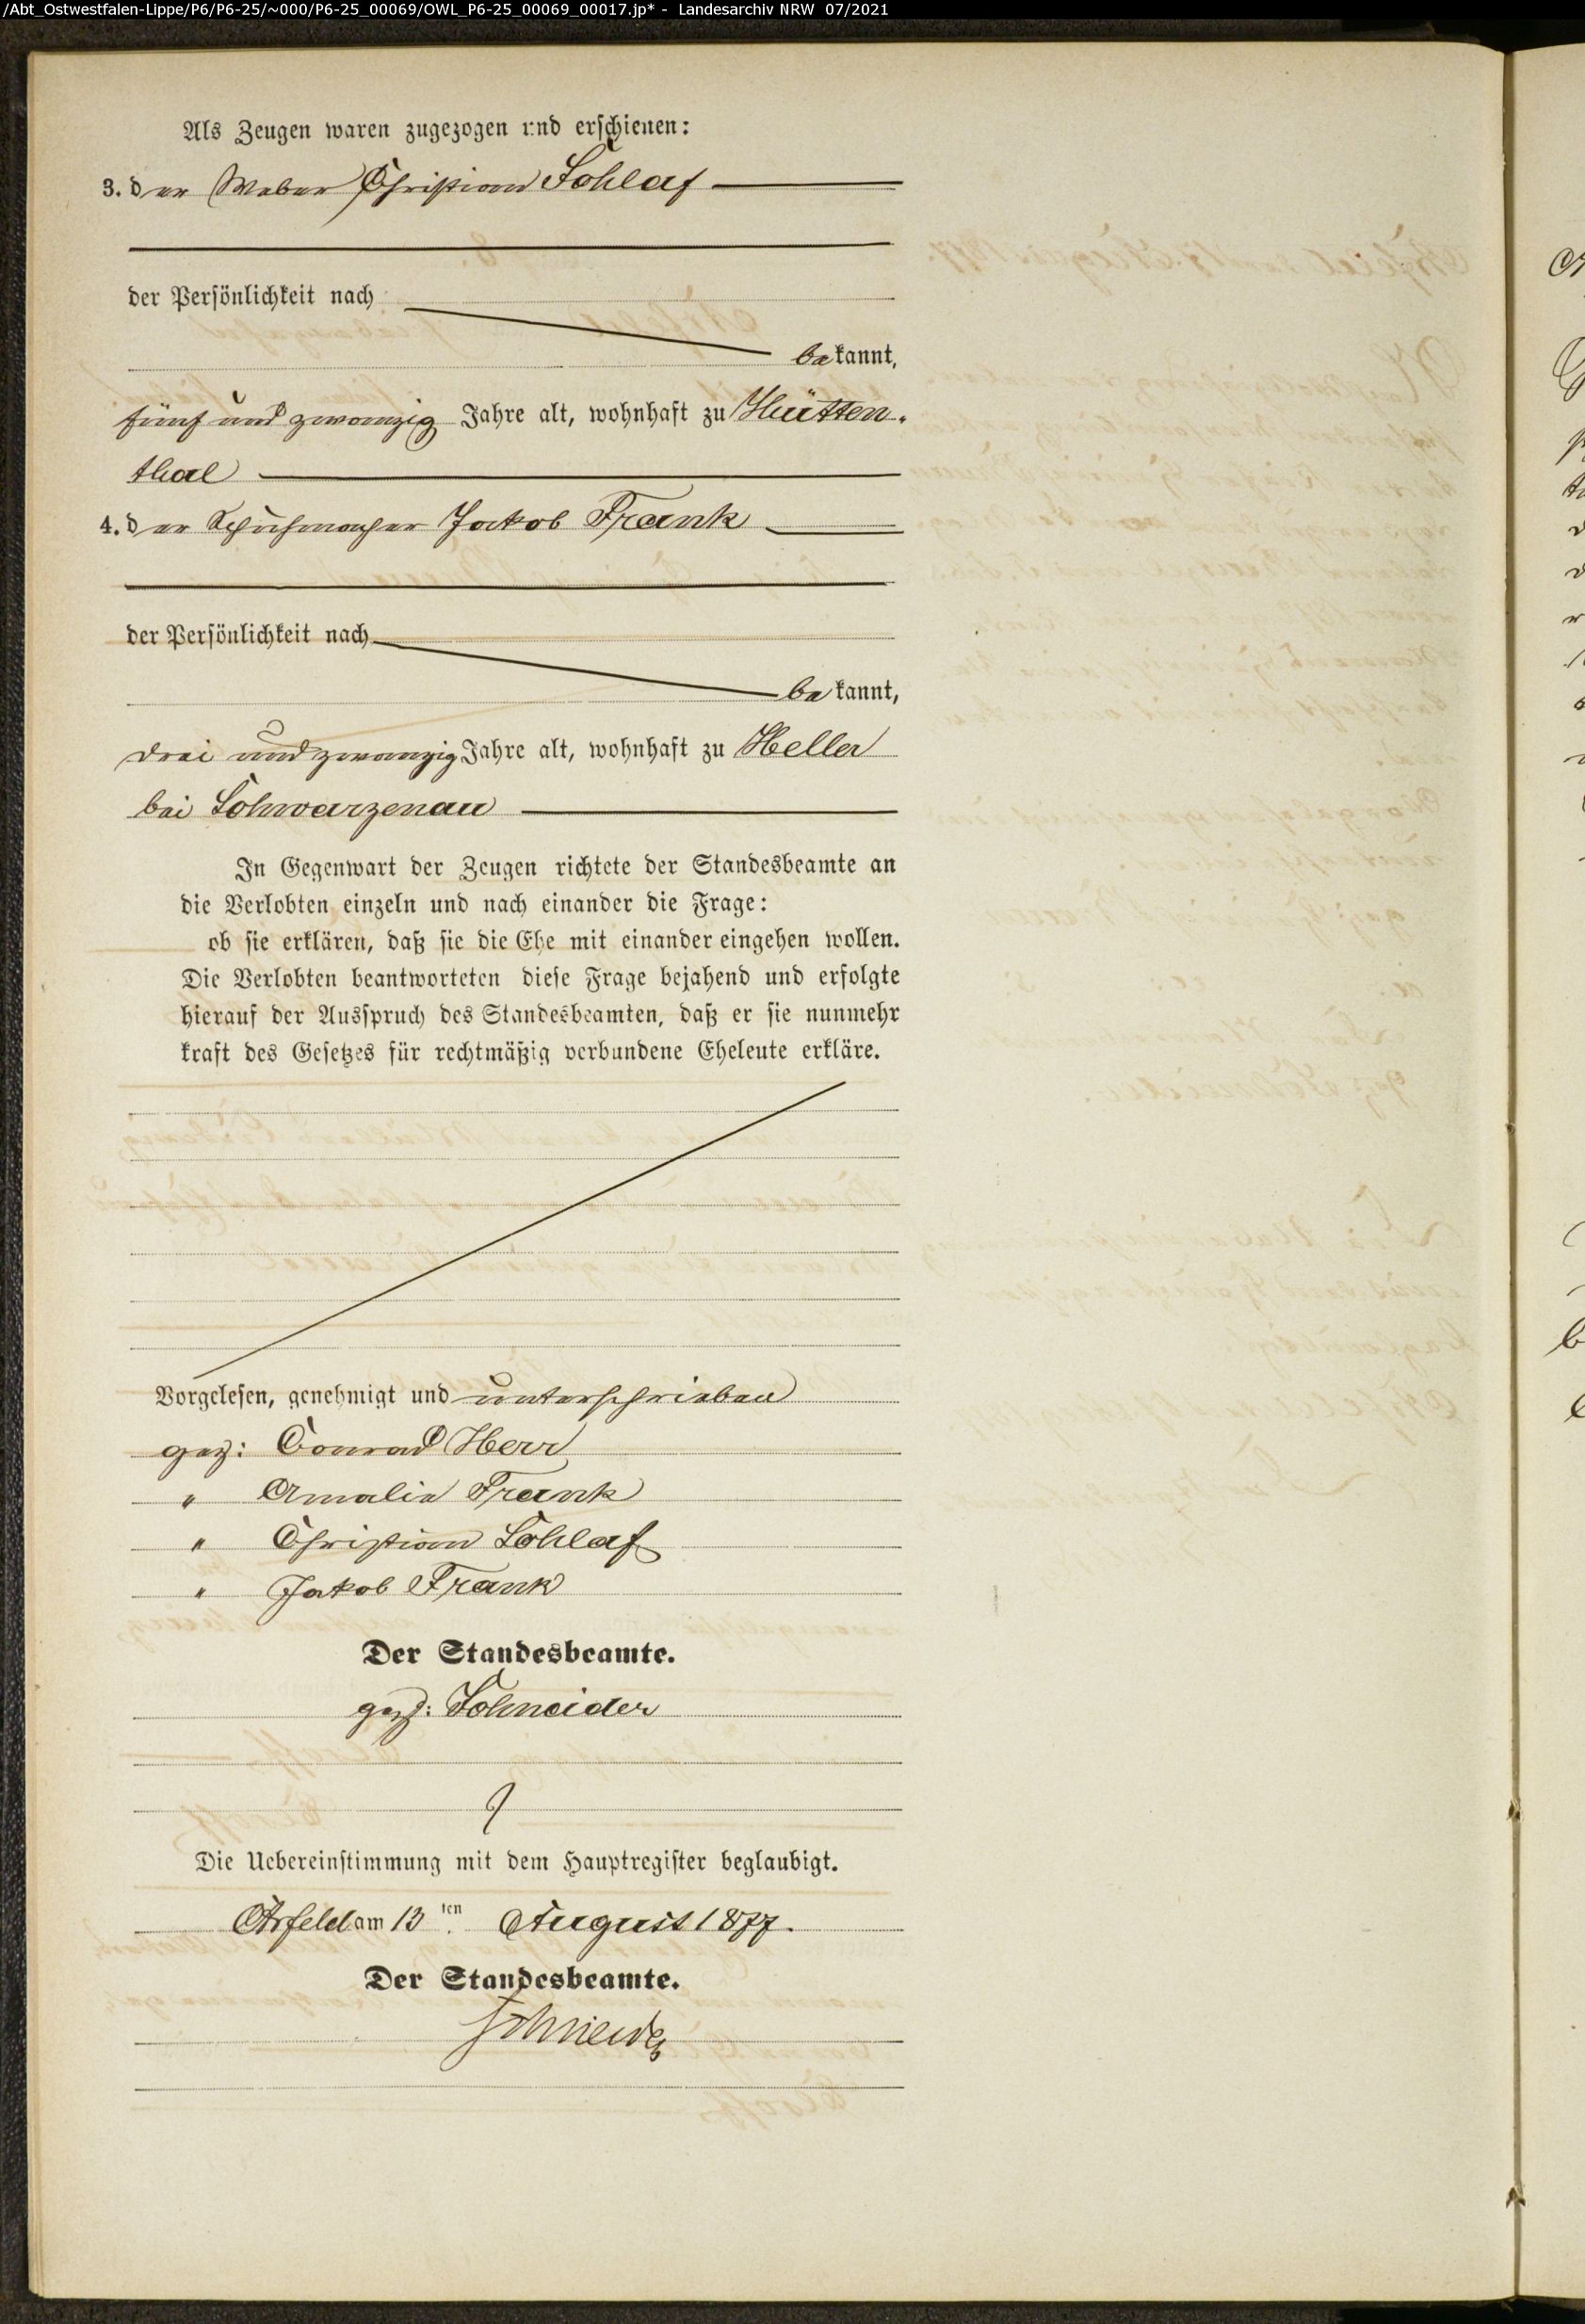 /Abt_Ostwestfalen-Lippe/P6/P6-25/~000/P6-25_00069/OWL_P6-25_00069_00017.jp* - Landesarchiv NRW 07/2021
Als Zeugen waren zugezogen und erschienen:
3. der Weber Christian Schlaf
der Persönlichkeit nach
bekannt,
fünf und zwanzig Jahre alt, wohnhaft zu Hütten-
thal
4. der Schuhmacher Jakob Frank
der Persönlichkeit nach
bekannt,
drei und zwanzig Jahre alt, wohnhaft zu Heller
bei Schwarzenau
In Gegenwart der Zeugen richtete der Standesbeamte an
die Verlobten einzeln und nach einander die Frage:
ob sie erklären, daß sie die Ehe mit einander eingehen wollen.
Die Verlobten beantworteten diese Frage bejahend und erfolgte
hierauf der Ausspruch des Standesbeamten, daß er sie nunmehr
kraft des Gesetzes für rechtmäßig verbundene Eheleute erkläre.
Vorgelesen, genehmigt und unterschrieben
gez: Conrad Herr
" Amalie Frank
" Christian Schlaf
" Jakob Frank
Der Standesbeamte.
gez: Schneider
Die Uebereinstimmung mit dem Hauptregister beglaubigt.
Arfeld am 13ten August 1877.
Der Standesbeamte.
Schneider